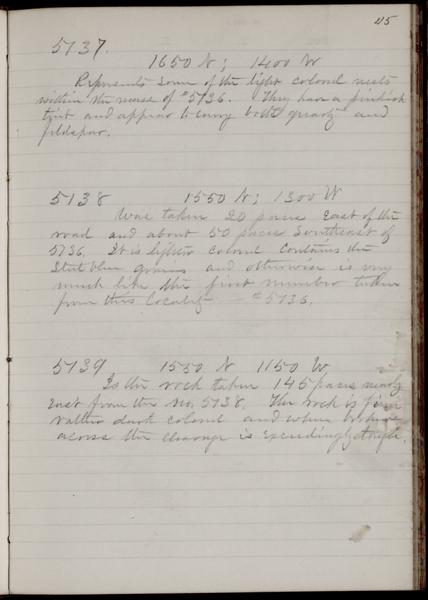 45
5137
1650 N; 1400 W
Represents some of the light colored rests
within the mass of #5136. They have a pinkish
tint and appear to carry both quartz and
feldspar.
5138 1550 N; 1300 W
Was taken 20 paces East of the
road and about 50 paces Southeast of
5136. It is lighter colored Contains the
blue grains and otherwise is very
much like the first number taken
from this locality #5136.
5139 1550 N 1150 W
Is the rock taken 145 paces nearly
East from the No. 5138. The rock is fine
rather dark colored and when broken
across the cleavage is exceedingly tough.